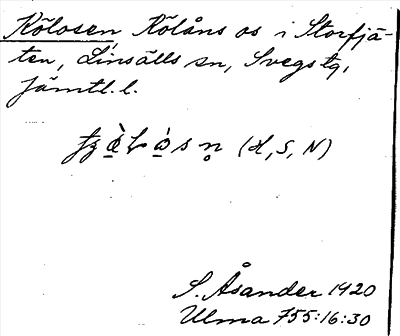 Kölosen, Kölåns os i Storfjä-
ten, Linsälls sn, Svegs tg,
Jämtl. l.
(H, S, N)
S. Åsander 1920
Ulma 755:16:30